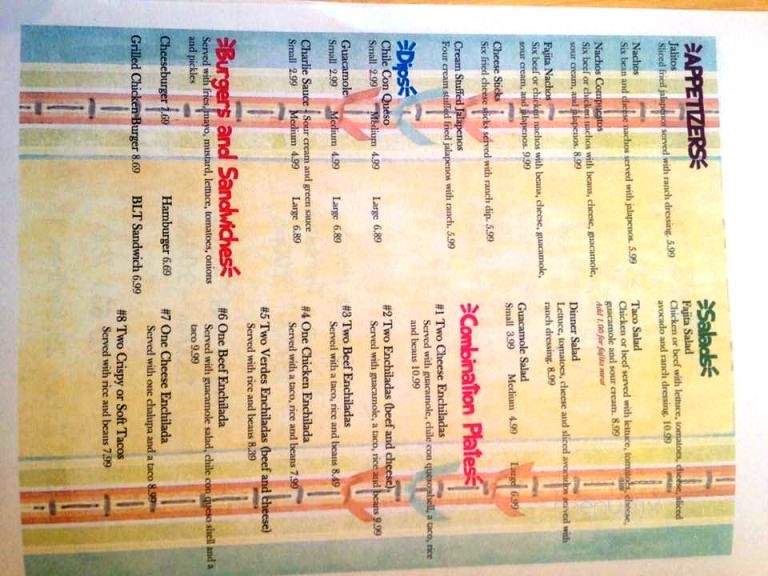 APPETIZERS
Jalitos
Sliced fried jalapenos served with ranch dressing. 5.99
Nachos
Six bean and cheese nachos served with jalapenos. 5.99
Nachos Compuestos
Six beef or chicken nachos with beans, cheese, guacamole,
sour cream, and jalapenos. 8.99
Fajita Nachos
Six beef or chicken nachos with beans, cheese, guacamole,
sour cream, and jalapenos. 9.99
Cheese Sticks
Six fried cheese sticks served with ranch dip. 5.99
Cream Stuffed Jalapenos
Four cream stuffed fried jalapenos with ranch. 5.99
Dips
Chile Con Queso
Small 2.99 Medium 4.99 Large 6.89
Guacamole
Small 2.99 Medium 4.99 Large 6.89
Charlie Sauce - Sour cream and green sauce
Small 2.99 Medium 4.99 Large 6.89
Burgers and Sandwiches
Served with fries, mayo, mustard, lettuce, tomatoes, onions
and pickles
Cheeseburger 7.69 Hamburger 6.69
Grilled Chicken Burger 8.69 BLT Sandwich 6.99
Salads
Fajita Salad
Chicken or beef with lettuce, tomatoes, cheese, sliced
avocado and ranch dressing. 10.99
Taco Salad
Chicken or beef served with lettuce, tomatoes, cheese,
guacamole and sour cream. 8.99
Add 1.00 for fajita meat
Dinner Salad
Lettuce, tomatoes, cheese and sliced avocados served with
ranch dressing. 8.99
Guacamole Salad
Small 3.99 Medium 4.99 Large 6.99
Combination Plates
#1 Two Cheese Enchiladas
Served with guacamole, chile con queso shell, a taco, rice
and beans 10.99
#2 Two Enchiladas (beef and cheese)
Served with guacamole, a taco, rice and beans 9.99
#3 Two Beef Enchiladas
Served with a taco, rice and beans 8.49
#4 One Chicken Enchilada
Served with a taco, rice and beans 7.99
#5 Two Verdes Enchiladas (beef and cheese)
Served with rice and beans 8.29
#6 One Beef Enchilada
Served with guacamole salad, chile con queso shell and a
taco 9.99
#7 One Cheese Enchilada
Served with one chalupa and a taco 8.99
#8 Two Crispy or Soft Tacos
Served with rice and beans 7.99